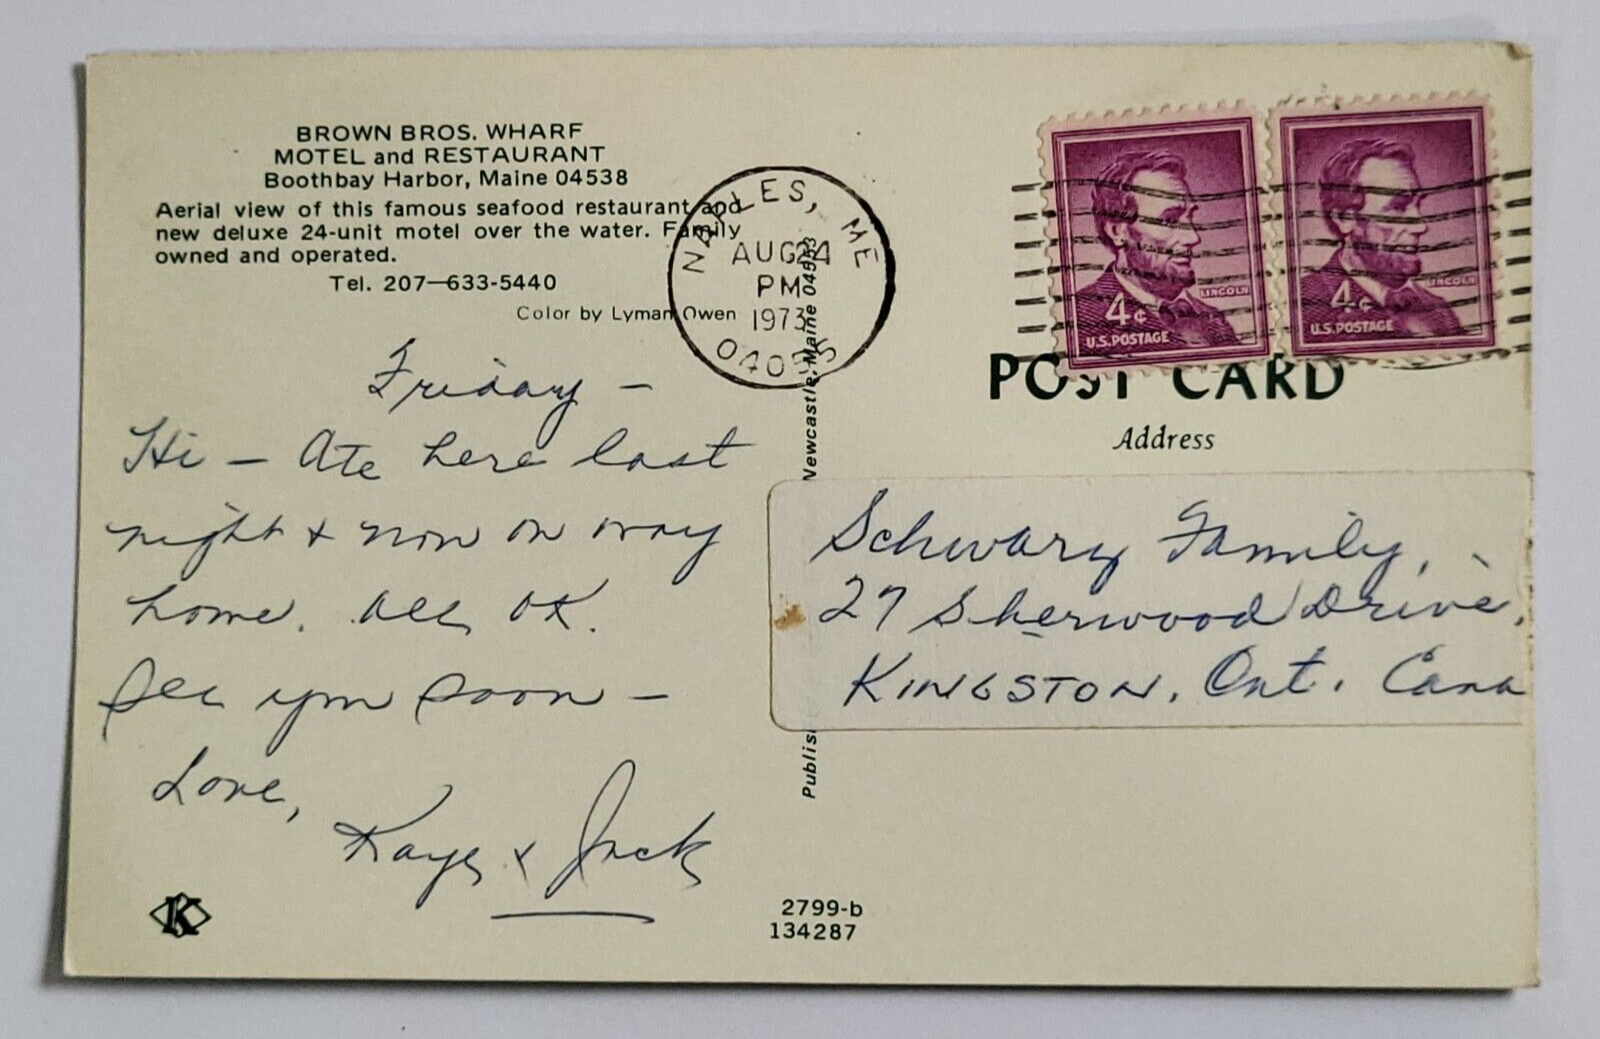 BROWN BROS. WHARF
MOTEL and RESTAURANT
Boothbay Harbor, Maine 04538
Aerial view of this famous seafood restaurant and
new deluxe 24-unit motel over the water. Family
owned and operated.
Tel. 207—633-5440
Color by Lyman Owen
NAPLES, ME
AUG 24
PM
1973
04055
LINCOLN
4¢
U.S. POSTAGE
LINCOLN
4¢
U.S. POSTAGE
POST CARD
Address
Friday —
Hi — Ate here last
night + now on way
home. All OK.
See you soon —
Love,
Kaye + Jack
Schwarz Family,
27 Sherwood Drive,
KINGSTON, Ont. Cana
Newcastle, Maine 04553
K
2799-b
134287